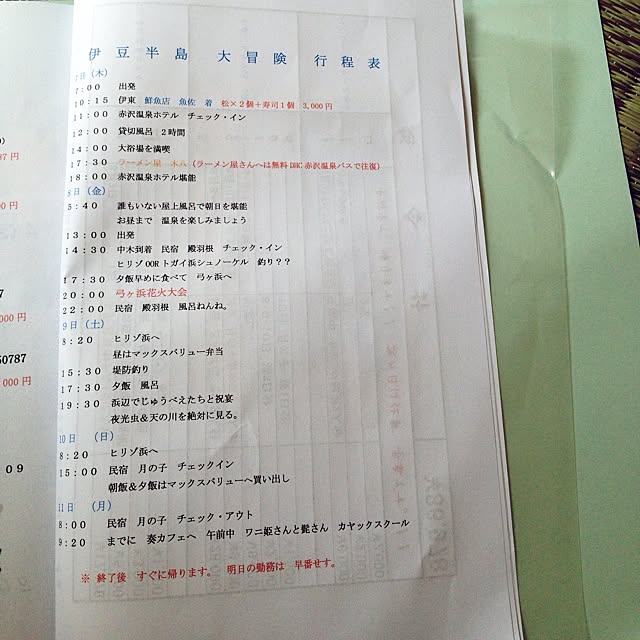 伊豆半島 大冒険 行程表
7日（木）
7:00 出発
10:15 伊東 鮮魚店 魚佐 着 松×2個＋寿司1個 3,000円
11:00 赤沢温泉ホテル チェック・イン
12:00 貸切風呂 2時間
14:00 大浴場を満喫
17:30 ラーメン屋 木八（ラーメン屋さんへは無料DHC赤沢温泉バスで往復）
18:00 赤沢温泉ホテル堪能
8日（金）
5:40 誰もいない屋上風呂で朝日を堪能
お昼まで 温泉を楽しみましょう
13:00 出発
14:30 中木到着 民宿 殿羽根 チェック・イン
ヒリゾOORトガイ浜シュノーケル 釣り？？
17:30 夕飯早めに食べて 弓ヶ浜へ
20:00 弓ヶ浜花火大会
22:00 民宿 殿羽根 風呂ねんね。
9日（土）
8:20 ヒリゾ浜へ
昼はマックスバリュー弁当
15:30 堤防釣り
17:30 夕飯 風呂
19:30 浜辺でじゅうべえたちと祝宴
夜光虫＆天の川を絶対に見る。
10日（日）
8:20 ヒリゾ浜へ
15:00 民宿 月の子 チェックイン
朝飯＆夕飯はマックスバリューへ買い出し
11日（月）
8:00 民宿 月の子 チェック・アウト
9:20 までに 奏カフェへ 午前中 ワニ姫さんと髭さん カヤックスクール
※ 終了後 すぐに帰ります。 明日の勤務は 早番せす。
000円
50787
000円
09